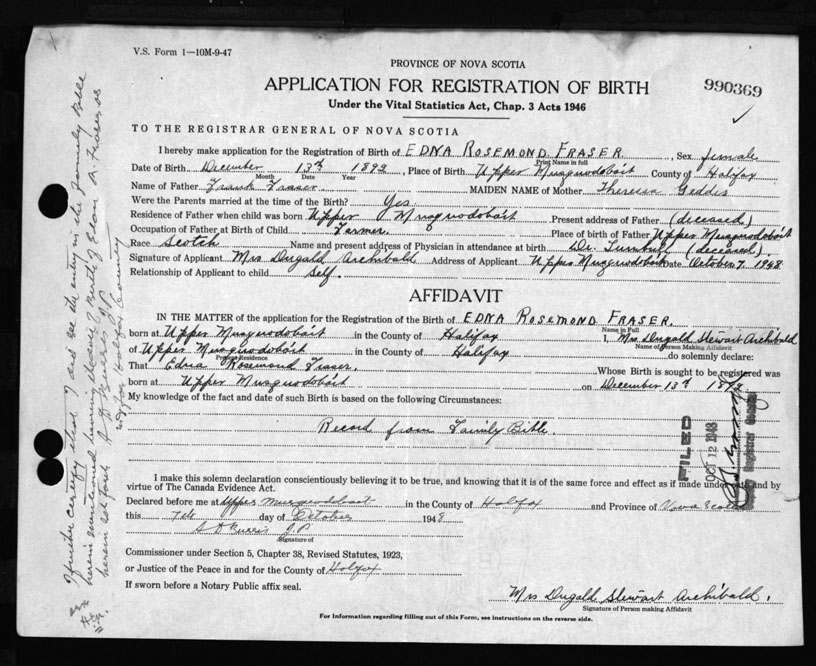 V.S. Form 1—10M-9-47
PROVINCE OF NOVA SCOTIA
APPLICATION FOR REGISTRATION OF BIRTH
990369
Under the Vital Statistics Act, Chap. 3 Acts 1946
TO THE REGISTRAR GENERAL OF NOVA SCOTIA
I hereby make application for the Registration of Birth of EDNA ROSEMOND FRASER, Sex female
Print Name in full
Date of Birth December 13th 1892, Place of Birth Upper Musquodoboit County of Halifax
Month Date Year
Name of Father Frank Fraser. MAIDEN NAME of Mother Theresa Geddis
Were the Parents married at the time of the Birth? Yes
Residence of Father when child was born Upper Musquodoboit Present address of Father (deceased)
Occupation of Father at Birth of Child Farmer. Place of birth of Father Upper Musquodoboit
Race Scotch Name and present address of Physician in attendance at birth Dr. Turnbull (deceased)
Signature of Applicant Mrs Dugald Archibald Address of Applicant Upper Musquodoboit Date October 7. 1948
Relationship of Applicant to child self.
AFFIDAVIT
IN THE MATTER of the application for the Registration of the Birth of EDNA ROSEMOND FRASER.
Name in Full
born at Upper Musquodoboit in the County of Halifax I, Mrs Dugald Stewart Archibald
Name of Person Making Affidavit
of Upper Musquodoboit in the County of Halifax do solemnly declare:
Present Residence
That Edna Rosemond Fraser. Whose Birth is sought to be registered was
born at Upper Musquodoboit on December 13th 1892
My knowledge of the fact and date of such Birth is based on the following Circumstances:
Record from Family Bible.
FILED
OCT 12 1948
Registrar General
I make this solemn declaration conscientiously believing it to be true, and knowing that it is of the same force and effect as if made under oath and by
virtue of The Canada Evidence Act.
Declared before me at Upper Musquodoboit in the County of Halifax and Province of Nova Scotia
this 7th day of October 1948
J.P.
Signature of
Commissioner under Section 5, Chapter 38, Revised Statutes, 1923,
or Justice of the Peace in and for the County of Halifax
If sworn before a Notary Public affix seal.
Mrs Dugald Stewart Archibald.
Signature of Person making Affidavit
For Information regarding filling out of this Form, see instructions on the reverse side.
I further certify that I have seen the entry in the Family Bible
herein mentioned showing the date of birth of Edna R. Fraser as
herein set forth
J.P.
in & for Halifax County